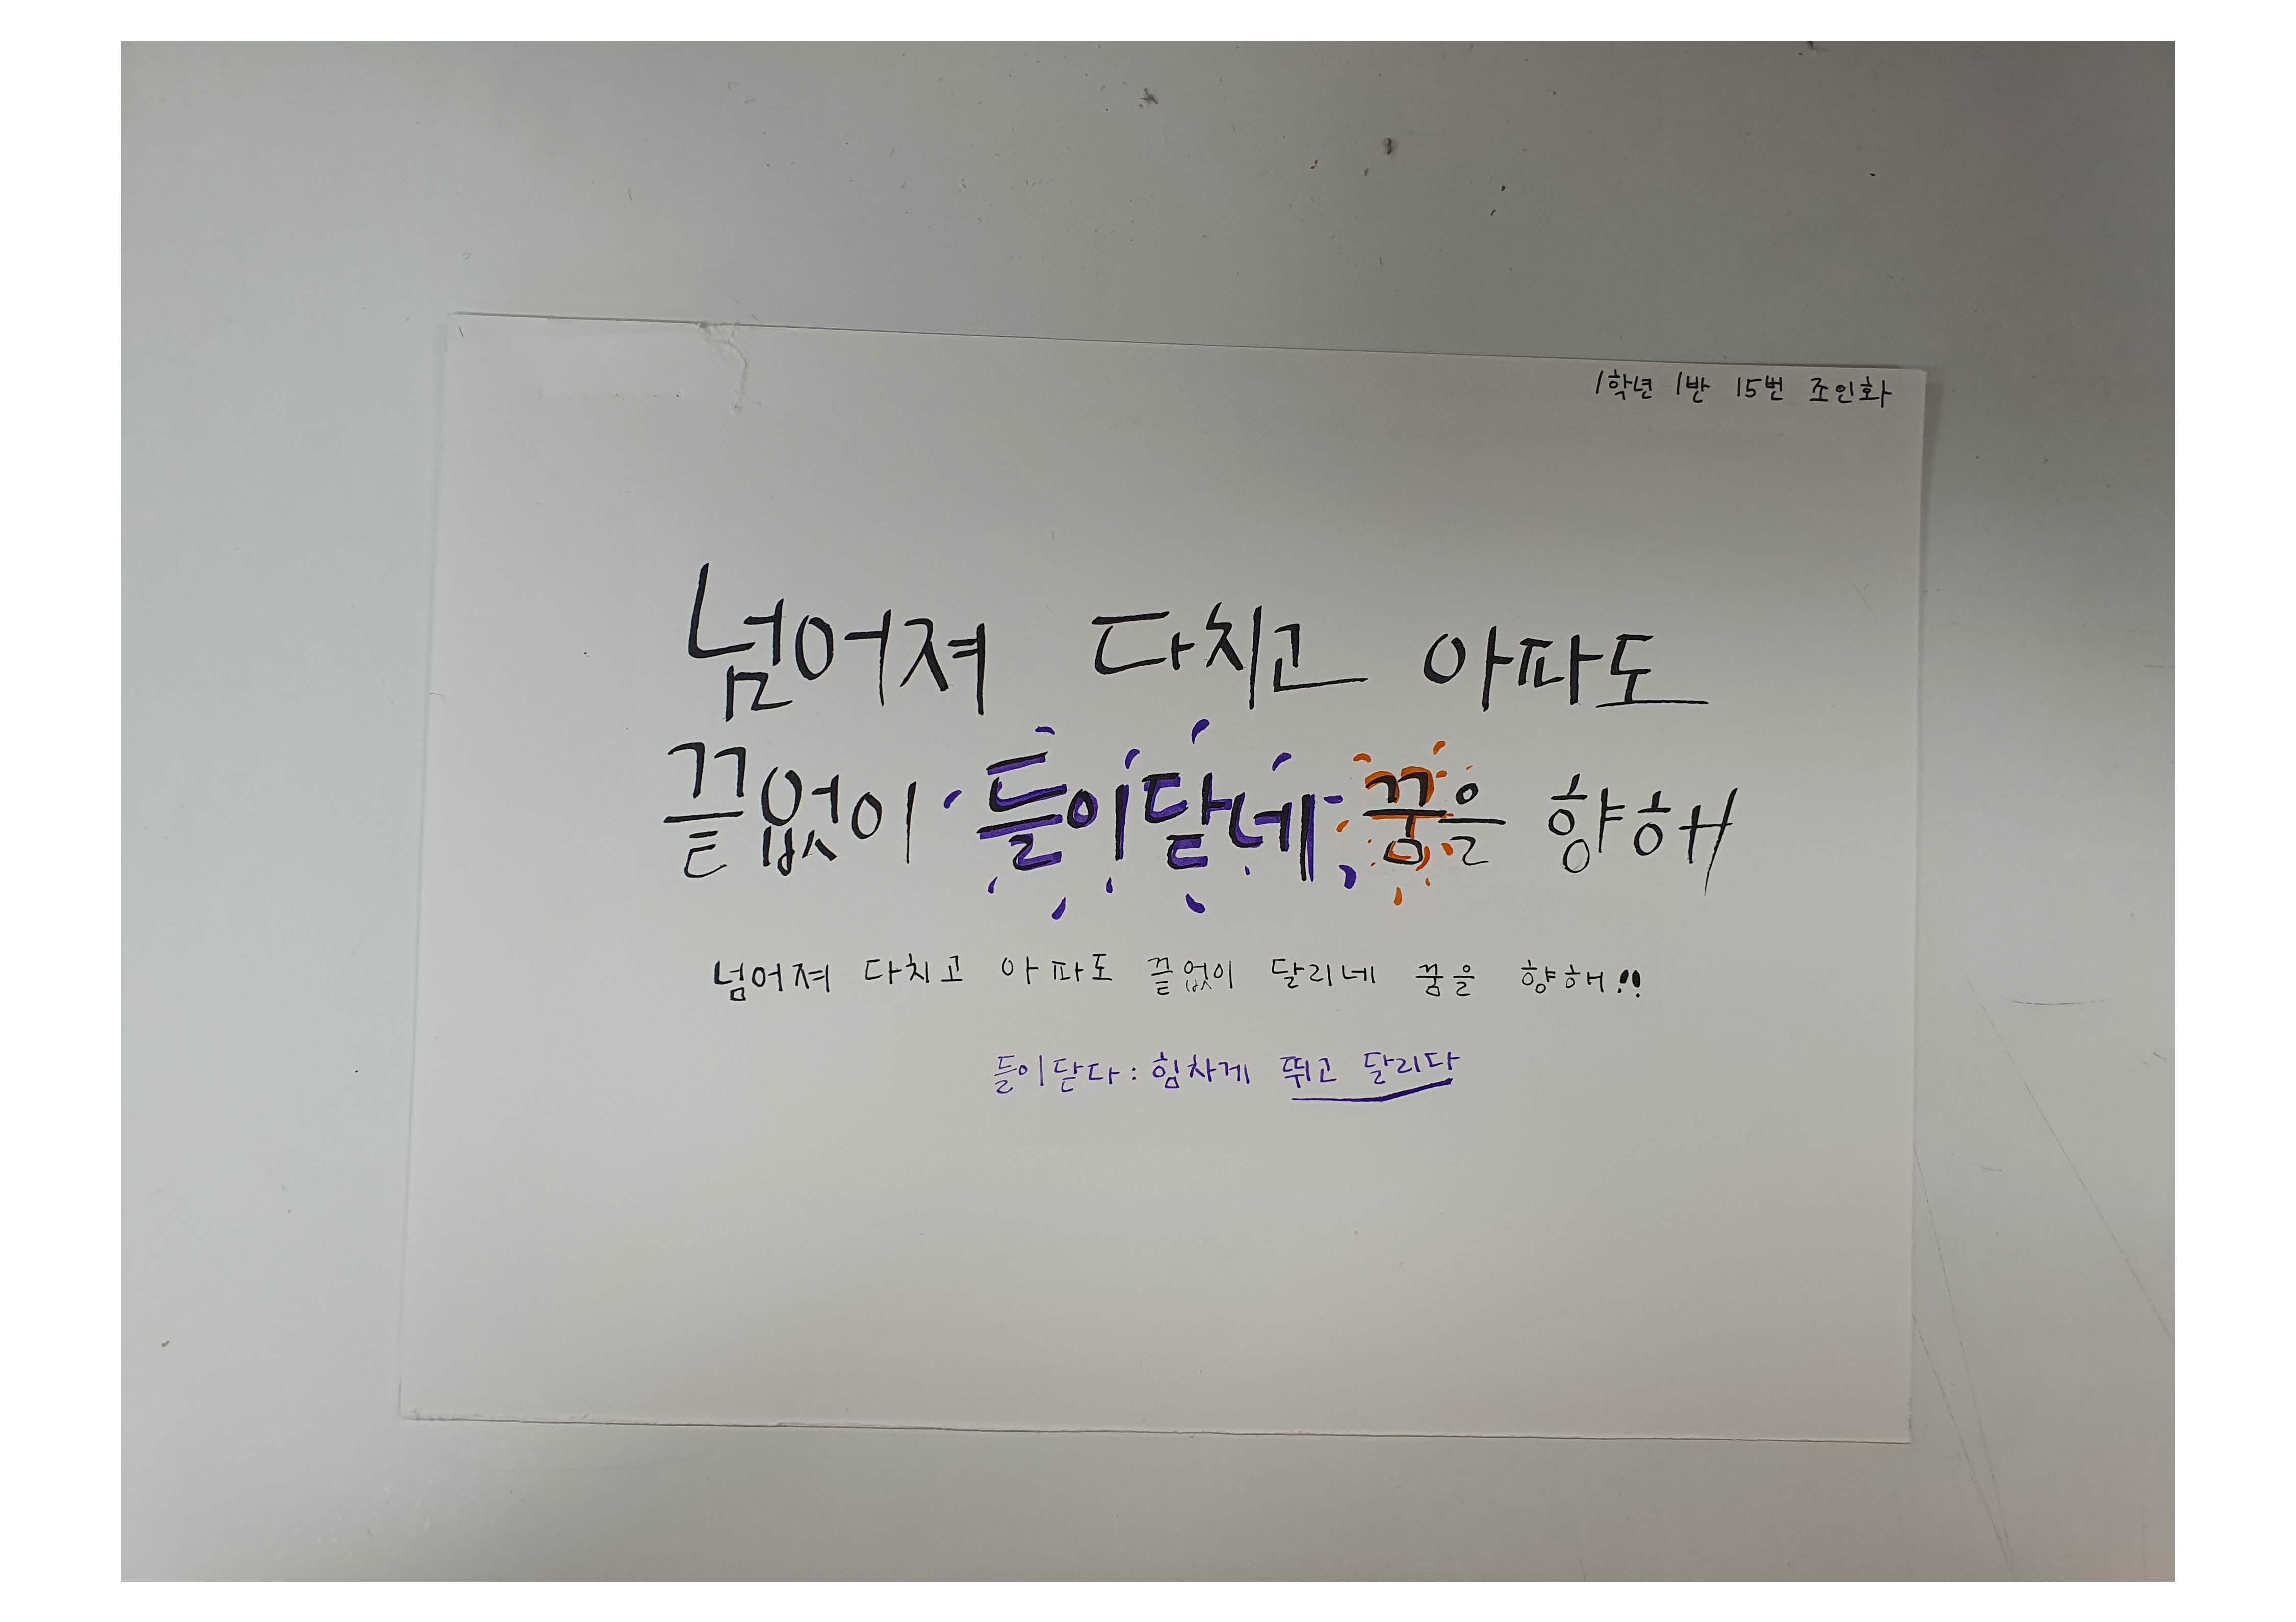 1학년 1반 15번 조인화
넘어져 다치고 아파도
끝없이 들이닫네 꿈을 향해
넘어져 다치고 아파도 끝없이 달리네 꿈을 향해!!
들이닫다: 힘차게 뛰고 달리다